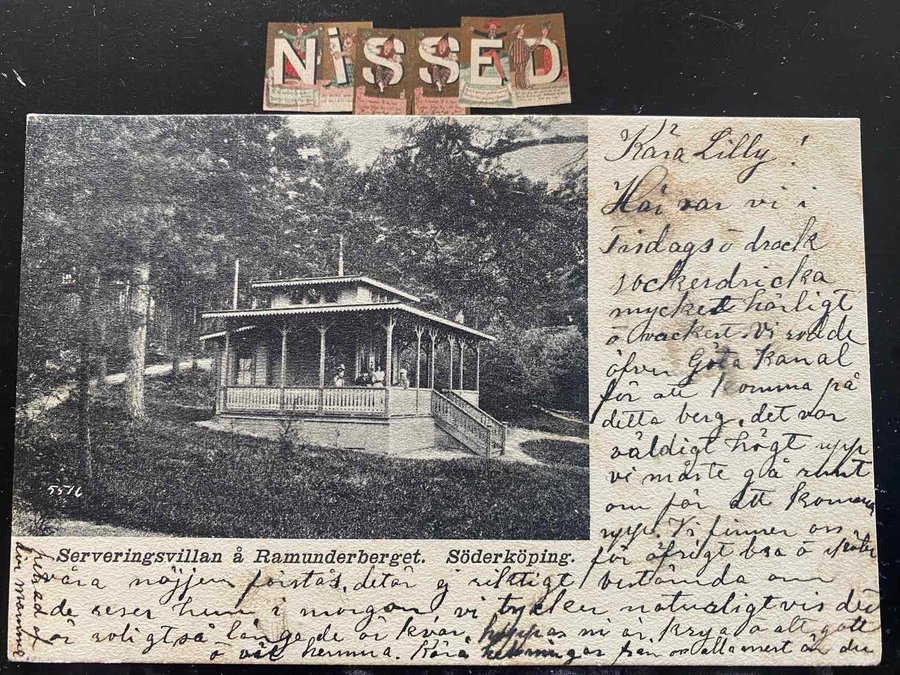 NiSSED
Kära Lilly!
Här var vi i
Tisdags o drack
sockerdricka
mycket härligt
o vackert. Vi rodde
öfver Göta Kanal
för att komma på
detta berg, det var
väldigt högt upp
vi måste gå runt
om för att komma
upp. Vi finner oss
för öfrigt bra o
5516
Serveringsvillan å Ramunderberget. Söderköping.
våra nöjjen förstås, det är ej riktigt bestämdt om
de reser hem i morgon, vi tycker naturligtvis det
är roligt så länge de är kvar, hoppas ni är krya o allt godt
o väl hemma. Kära helsningar från oss alla